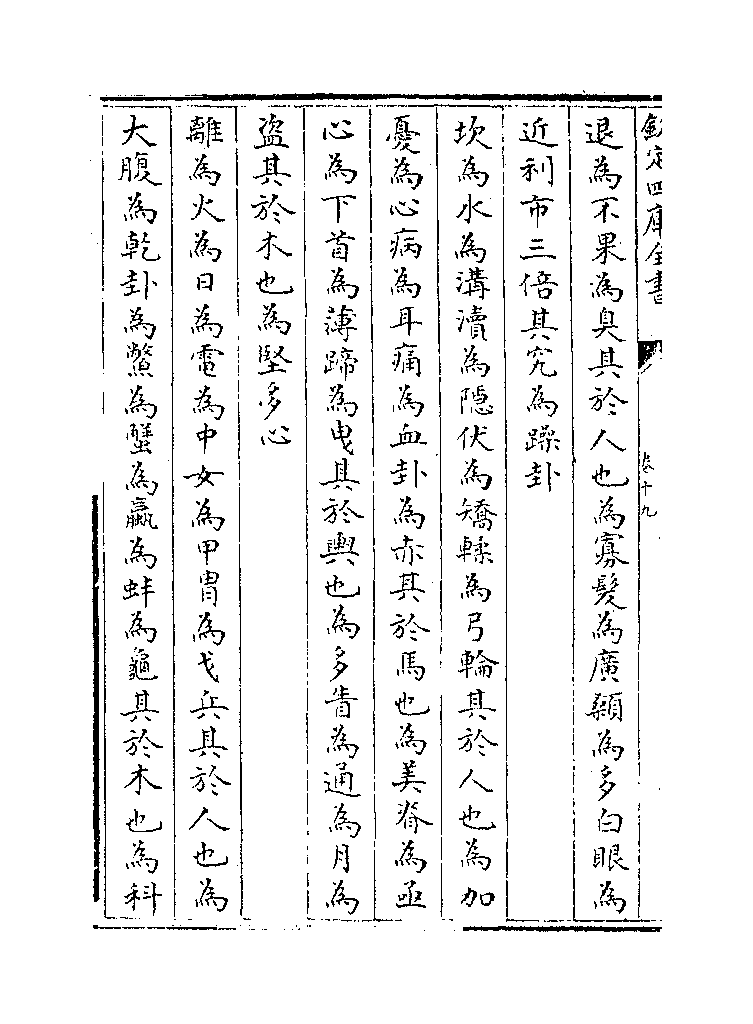 欽定四庫全書
卷十九
退為不果為臭其於人也為寡髮為廣顙為多白眼為
近利市三倍其究為躁卦
坎為水為溝瀆為隱伏為矯輮為弓輪其於人也為加
憂為心病為耳痛為血卦為赤其於馬也為美脊為亟
心為下首為薄蹄為曳其於輿也為多眚為通為月為
盜其於木也為堅多心
離為火為日為電為中女為甲冑為戈兵其於人也為
大腹為乾卦為鱉為蟹為蠃為蚌為龜其於木也為科